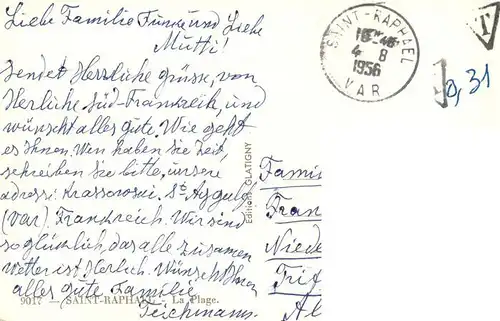 Liebe Familie Fünne und Liebe
Mutti!
Sendet Herzliche grüsse, von
Herliche Süd-Frankreik, und
wünscht alles gute. Wie geht
es Ihnen. Wen haben Sie Zeit,
schreiben Sie bitte, unsere
adress: Krassowski. St Aygulf
(Var). Frankreich. Wir sind
so glücklich, das alle zusamen
Wetter ist Herlich. Wünscht Ihnen
alles gute Familie
Teichmann.
9017 — SAINT-RAPHAEL. La Plage.
Editions GLATIGNY
SAINT-RAPHAEL
4 8
1956
VAR
T
0,31
Famil
Fran
Niede
Al